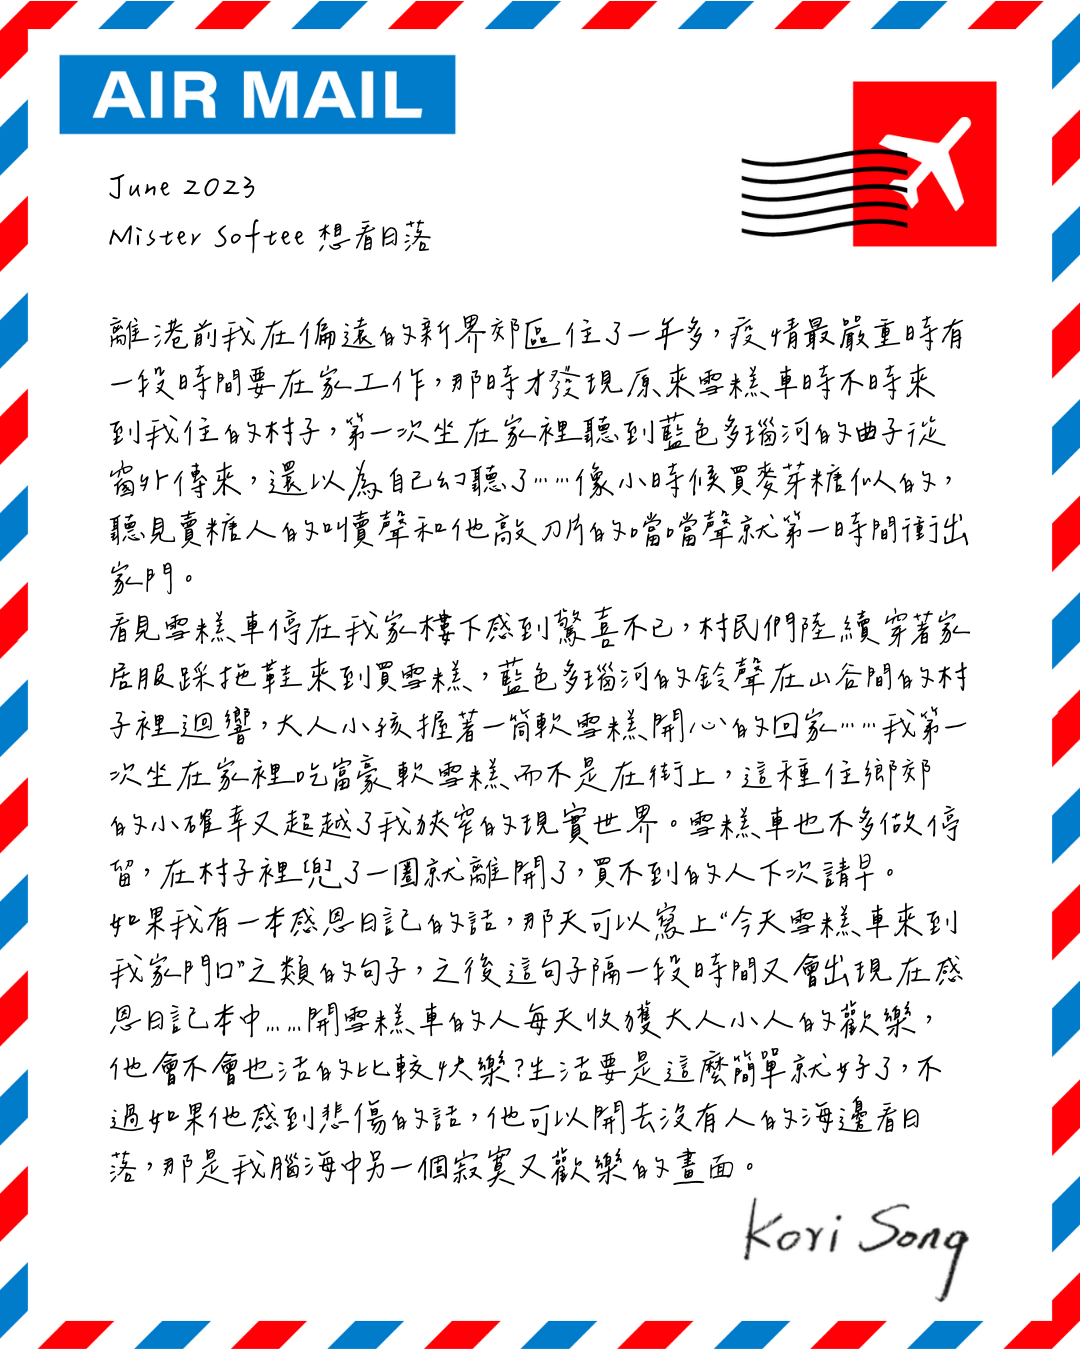 AIR MAIL
June 2023
Mister Softee 想看日落
離港前我在偏遠的新界郊區住了一年多，疫情最嚴重時有
一段時間要在家工作，那時才發現原來雪糕車時不時來
到我住的村子，第一次坐在家裡聽到藍色多瑙河的曲子從
窗外傳來，還以為自己幻聽了……像小時候買麥芽糖似的，
聽見賣糖人的叫賣聲和他敲刀片的噹噹聲就第一時間衝出
家門。
看見雪糕車停在我家樓下感到驚喜不已，村民們陸續穿著家
居服踩拖鞋來到買雪糕，藍色多瑙河的鈴聲在山谷間的村
子裡迴響，大人小孩握著一筒軟雪糕開心的回家……我第一
次坐在家裡吃富豪軟雪糕而不是在街上，這種住鄉郊
的小確幸又超越了我狹窄的現實世界。雪糕車也不多做停
留，在村子裡兜了一圈就離開了，買不到的人下次請早。
如果我有一本感恩日記的話，那天可以寫上“今天雪糕車來到
我家門口”之類的句子，之後這句子隔一段時間又會出現在感
恩日記本中……開雪糕車的人每天收獲大人小人的歡樂，
他會不會也活的比較快樂?生活要是這麼簡單就好了，不
過如果他感到悲傷的話，他可以開去沒有人的海邊看日
落，那是我腦海中另一個寂寞又歡樂的畫面。
Kori Song